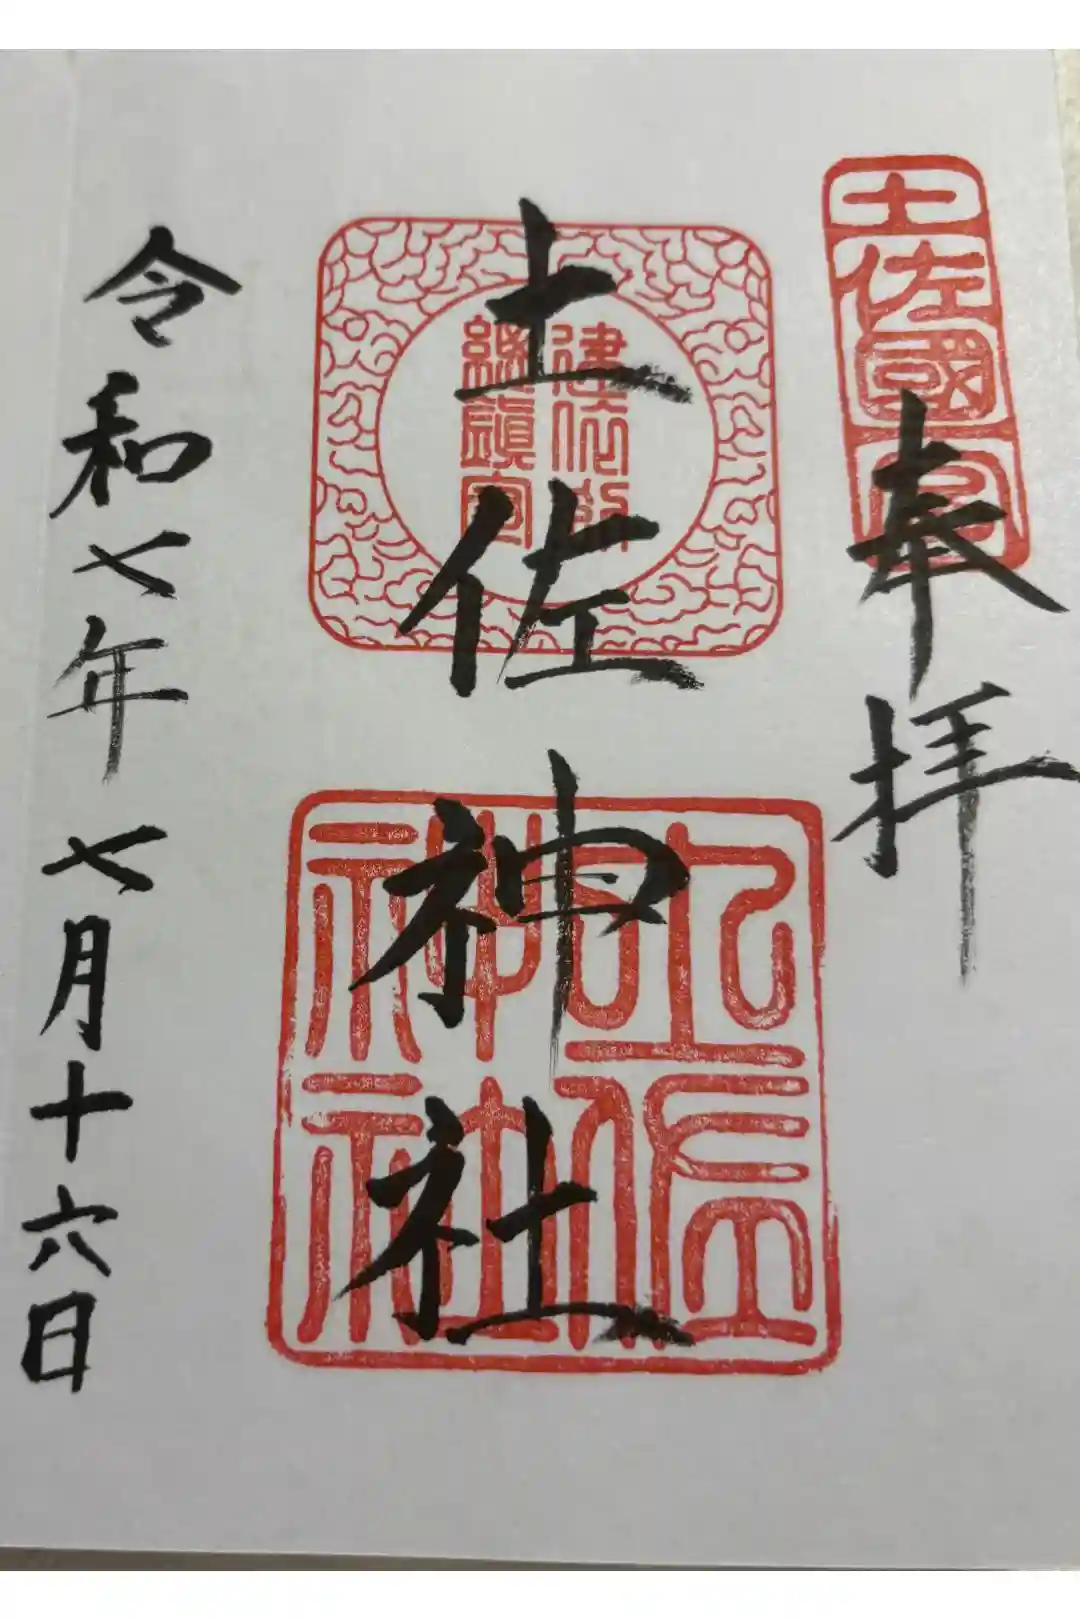 土佐國一宮
奉拝
建依別
總鎮守
土佐神社
土佐神社
令和七年七月十六日